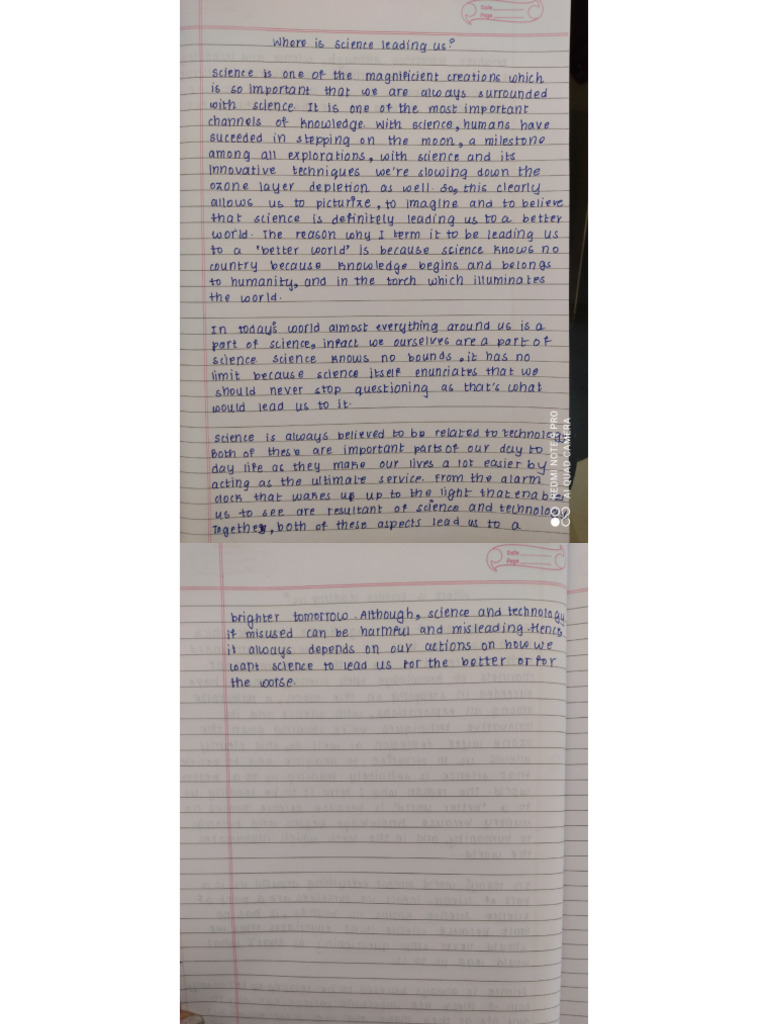 Date
Page
Where is science leading us?
Science is one of the magnificient creations which
is so important that we are always surrounded
with science. It is one of the most important
channels of knowledge. With science, humans have
succeded in stepping on the moon, a milestone
among all explorations, with science and its
innovative techniques we're slowing down the
ozone layer depletion as well. So, this clearly
allows us to picturize, to imagine and to believe
that science is definitely leading us to a better
world. The reason why I term it to be leading us
to a 'better world' is because science knows no
country because knowledge begins and belongs
to humanity, and in the torch which illuminates
the world.
In today's world almost everything around us is a
part of science, infact we ourselves are a part of
science science knows no bounds, it has no
limit because science itself enunciates that we
should never stop questioning as that's what
would lead us to it.
Science is always believed to be related to technology
Both of these are important parts of our day to
day life as they make our lives a lot easier by
acting as the ultimate service. From the alarm
clock that wakes up up to the light that enab
us to see are resultant of science and technology
Together, both of these aspects lead us to a
REDMI NOTE 8 PRO
AI QUAD CAMERA
Date
Page
brighter tomorrow. Although, science and technology
if misused can be harmful and misleading. Hence
it always depends on our actions on how we
want science to lead us for the better or for
the worse.